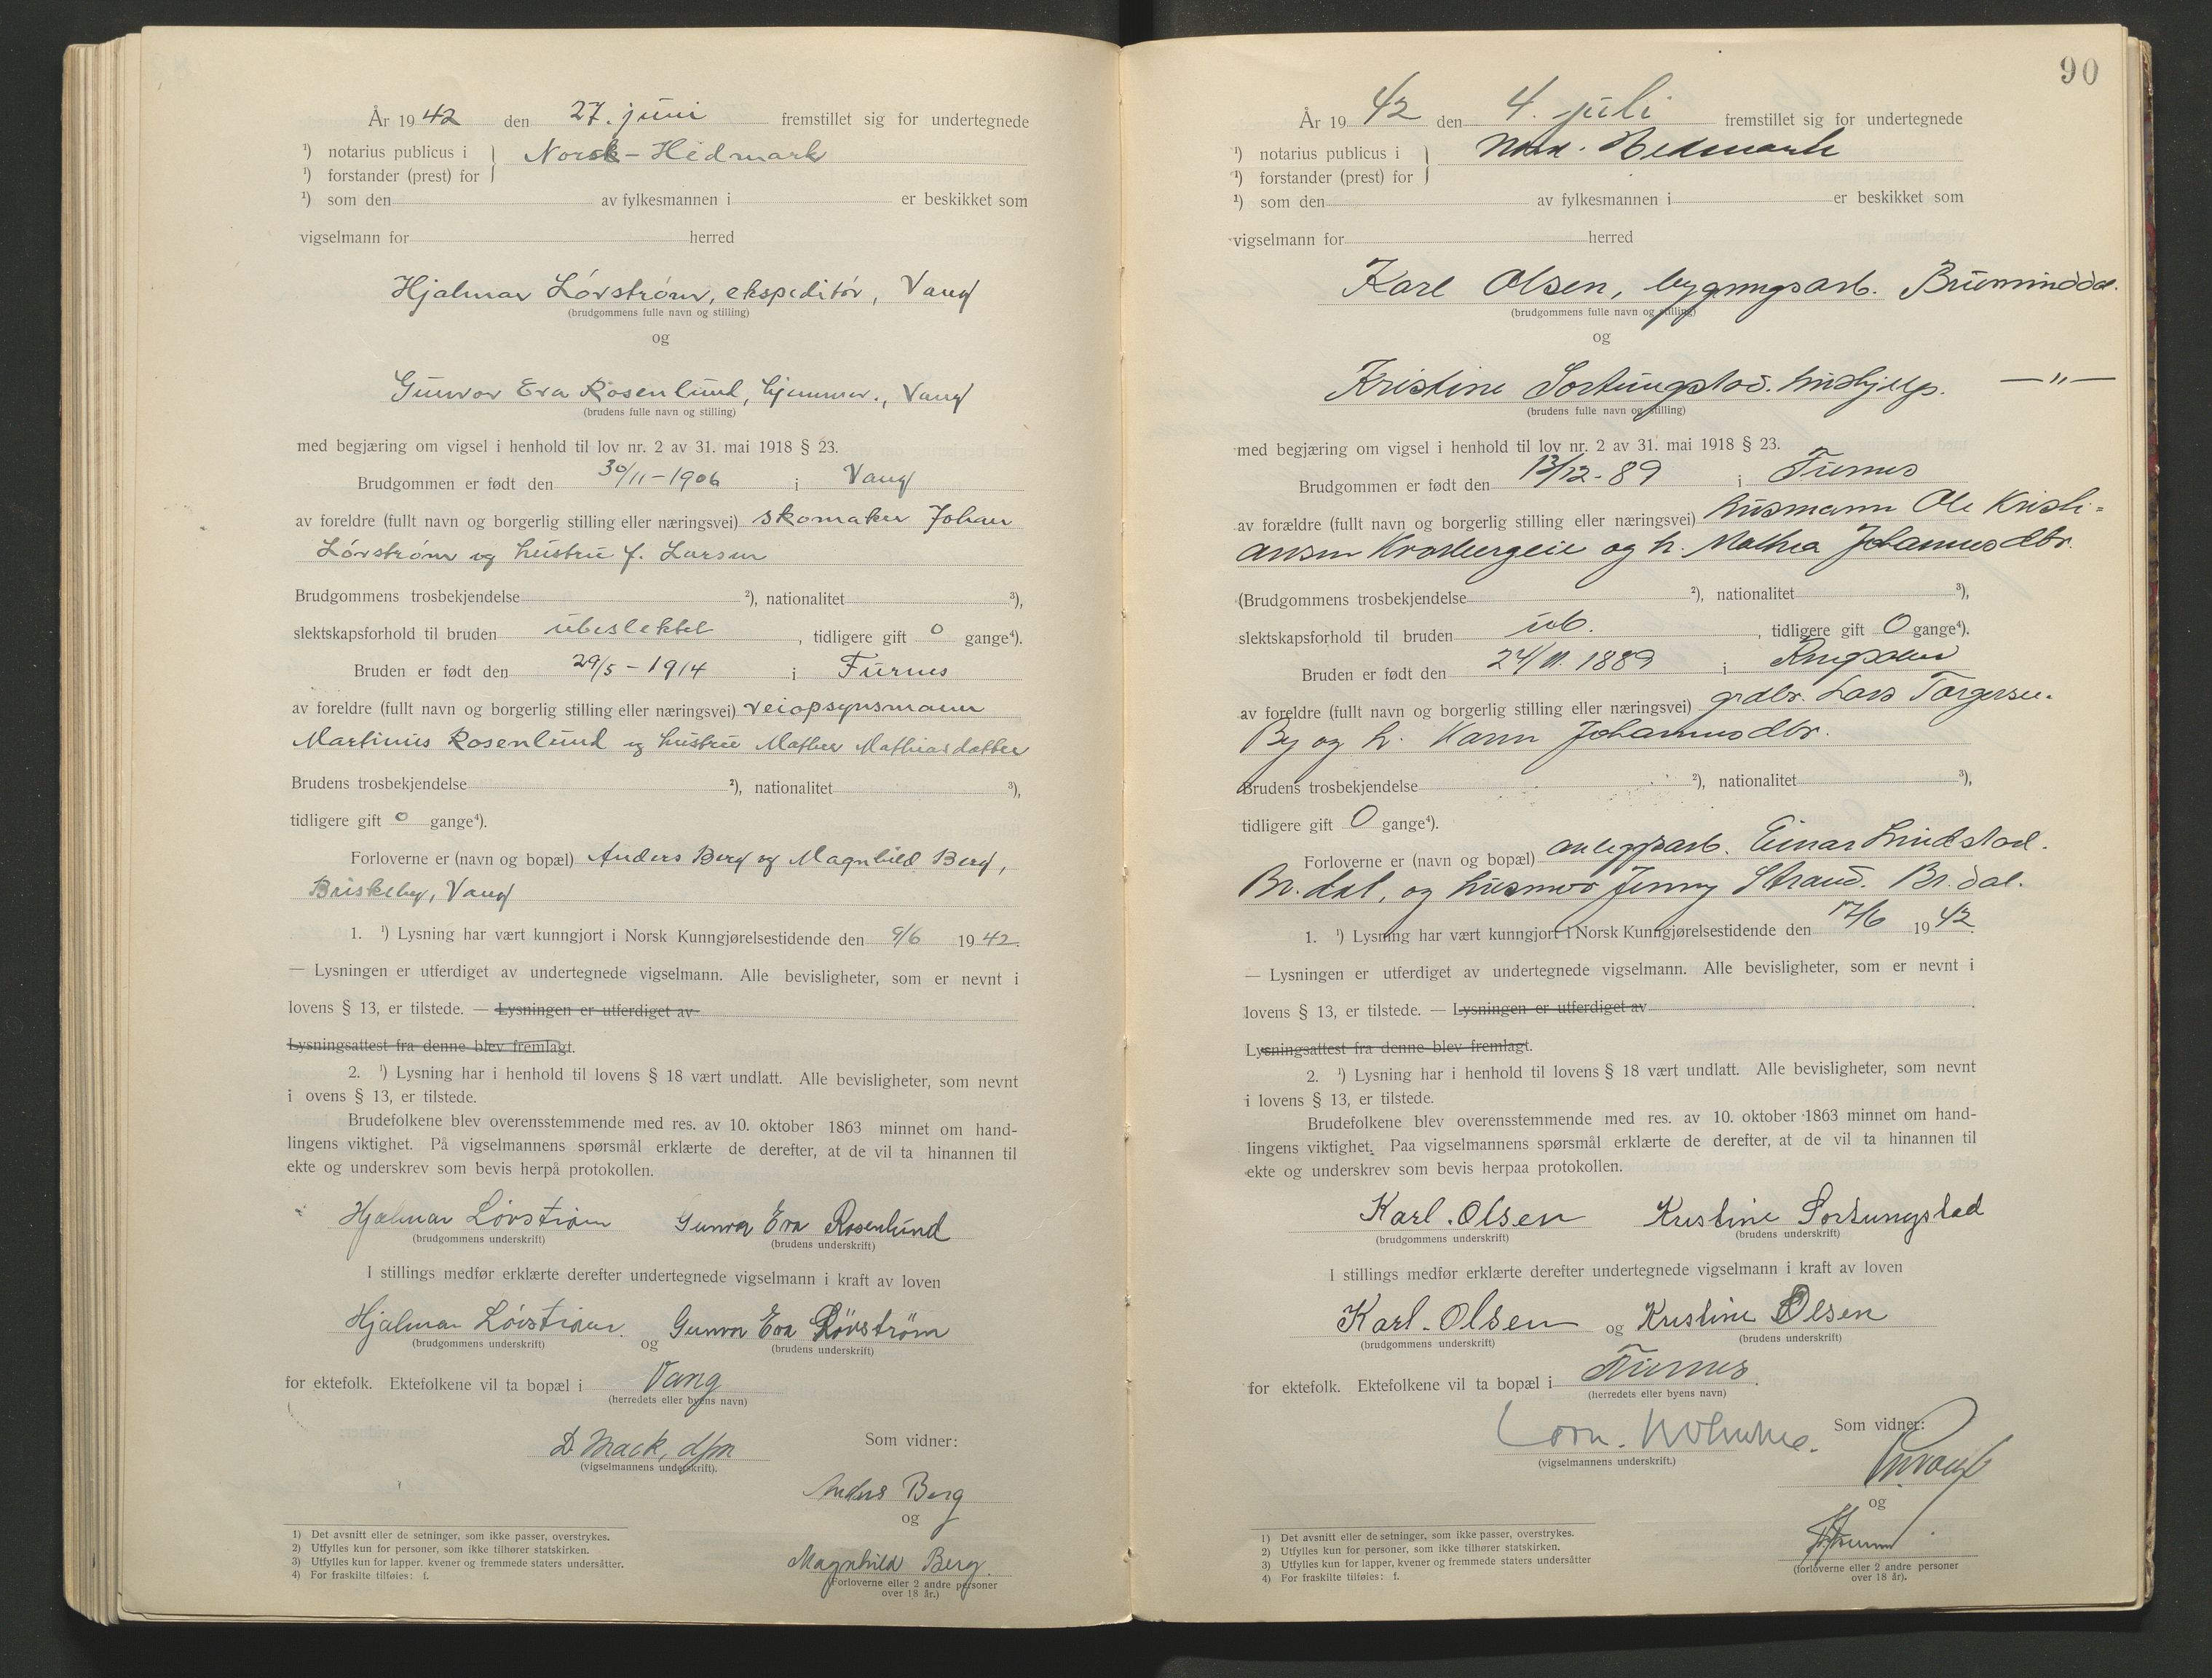 År 1942 den 27. juni fremstillet sig for undertegnede
¹) notarius publicus i } Norsk-Hedmark
¹) forstander (prest) for
¹) som den av fylkesmannen i er beskikket som
vigselmann for herred
Hjalmar Lövström, ekspeditör, Vang
(brudgommens fulle navn og stilling)
og
Gunvor Eva Rosenlund, hjemmev., Vang
(brudens fulle navn og stilling)
med begjæring om vigsel i henhold til lov nr. 2 av 31. mai 1918 § 23.
Brudgommen er født den 30/11-1906 i Vang
av foreldre (fullt navn og borgerlig stilling eller næringsvei) skomaker Johan
Lövström og hustru f. Larsen
Brudgommens trosbekjendelse ²), nationalitet ³),
slektskapsforhold til bruden ubeslektet, tidligere gift 0 gange⁴).
Bruden er født den 29/5-1914 i Furnes
av foreldre (fullt navn og borgerlig stilling eller næringsvei) veiopsynsmann
Martinus Rosenlund og hustru Mathea Mathiasdatter
Brudens trosbekjendelse ²), nationalitet ³),
tidligere gift 0 gange⁴).
Forloverne er (navn og bopæl) Anders Berg og Magnhild Berg,
Briskeby, Vang
1. ¹) Lysning har vært kunngjort i Norsk Kunngjørelsestidende den 9/6 1942.
— Lysningen er utferdiget av undertegnede vigselmann. Alle bevisligheter, som er nevnt i
lovens § 13, er tilstede. — Lysningen er utferdiget av
Lysningsattest fra denne blev fremlagt.
2. ¹) Lysning har i henhold til lovens § 18 vært undlatt. Alle bevisligheter, som nevnt
i ovens § 13, er tilstede.
Brudefolkene blev overensstemmende med res. av 10. oktober 1863 minnet om hand-
lingens viktighet. På vigselmannens spørsmål erklærte de derefter, at de vil ta hinannen til
ekte og underskrev som bevis herpå protokollen.
Hjalmar Lövström Gunvor Eva Rosenlund
(brudgommens underskrift) (brudens underskrift)
I stillings medfør erklærte derefter undertegnede vigselmann i kraft av loven
Hjalmar Lövström og Gunvor Eva Lövström
(brudgommens underskrift) (brudens underskrift)
for ektefolk. Ektefolkene vil ta bopæl i Vang
(herredets eller byens navn)
D. Mack, dfm
(vigselmannens underskrift).
Som vidner:
Anders Berg
og
Magnhild Berg.
(Forloverne eller 2 andre personer
over 18 år.)
1) Det avsnitt eller de setninger, som ikke passer, overstrykes.
2) Utfylles kun for personer, som ikke tilhører statskirken.
3) Utfylles kun for lapper, kvener og fremmede staters undersåtter.
4) For fraskilte tilføies: f.
90
År 1942 den 4. juli fremstillet sig for undertegnede
¹) notarius publicus i } Nord-Hedmark
¹) forstander (prest) for
¹) som den av fylkesmannen i er beskikket som
vigselmann for herred
Karl Olsen, bygningsarb. Brumunddal.
(brudgommens fulle navn og stilling)
og
Kristine Sortungstad. hushjelp. —"—
(brudens fulle navn og stilling)
med begjæring om vigsel i henhold til lov nr. 2 av 31. mai 1918 § 23.
Brudgommen er født den 13/12-89 i Furnes
av forældre (fullt navn og borgerlig stilling eller næringsvei) husmann Ole Kristi-
ansen og h. Mathea Johannesdtr.
(Brudgommens trosbekjendelse ²), nationalitet ³),
slektskapsforhold til bruden ub., tidligere gift 0 gange⁴).
Bruden er født den 24/11. 1889 i Ringsaker
av foreldre (fullt navn og borgerlig stilling eller næringsvei) grdbr. Lars Torgersen.
By og h. Karen Johannesdtr.
Brudens trosbekjendelse ²), nationalitet ³),
tidligere gift 0 gange⁴).
Forloverne er (navn og bopæl) anleggsarb. Einar Lindstad.
Br.dal, og husmor Jenny Strand. Br.dal.
1. ¹) Lysning har vært kunngjort i Norsk Kunngjørelsestidende den 17/6 1942
— Lysningen er utferdiget av undertegnede vigselmann. Alle bevisligheter, som er nevnt i
lovens § 13, er tilstede. — Lysningen er utferdiget av
Lysningsattest fra denne blev fremlagt.
2. ¹) Lysning har i henhold til lovens § 18 vært undlatt. Alle bevisligheter, som nevnt
i lovens § 13, er tilstede.
Brudefolkene blev overensstemmende med res. av 10. oktober 1863 minnet om hand-
lingens viktighet. Paa vigselmannens spørsmål erklærte de derefter, at de vil ta hinannen til
ekte og underskrev som bevis herpaa protokollen.
Karl. Olsen Kristine Sortungstad
(brudgommens underskrift) (brudens underskrift)
I stillings medfør erklærte derefter undertegnede vigselmann i kraft av loven
Karl. Olsen og Kristine Olsen
(brudgommens underskrift) (brudens underskrift)
for ektefolk. Ektefolkene vil ta bopæl i Furnes.
(herredets eller byens navn)
(vigselmannens underskrift.)
Som vidner:
og
(forloverne eller 2 andre personer
over 18 år).
1) Det avsnitt eller de setninger, som ikke passer, overstrykes.
2) Utfylles kun for personer, som ikke tilhører statskirken.
3) Utfylles kun for lapper, kvener og fremmede staters undersåtter
4) For fraskilte tilføies: f.